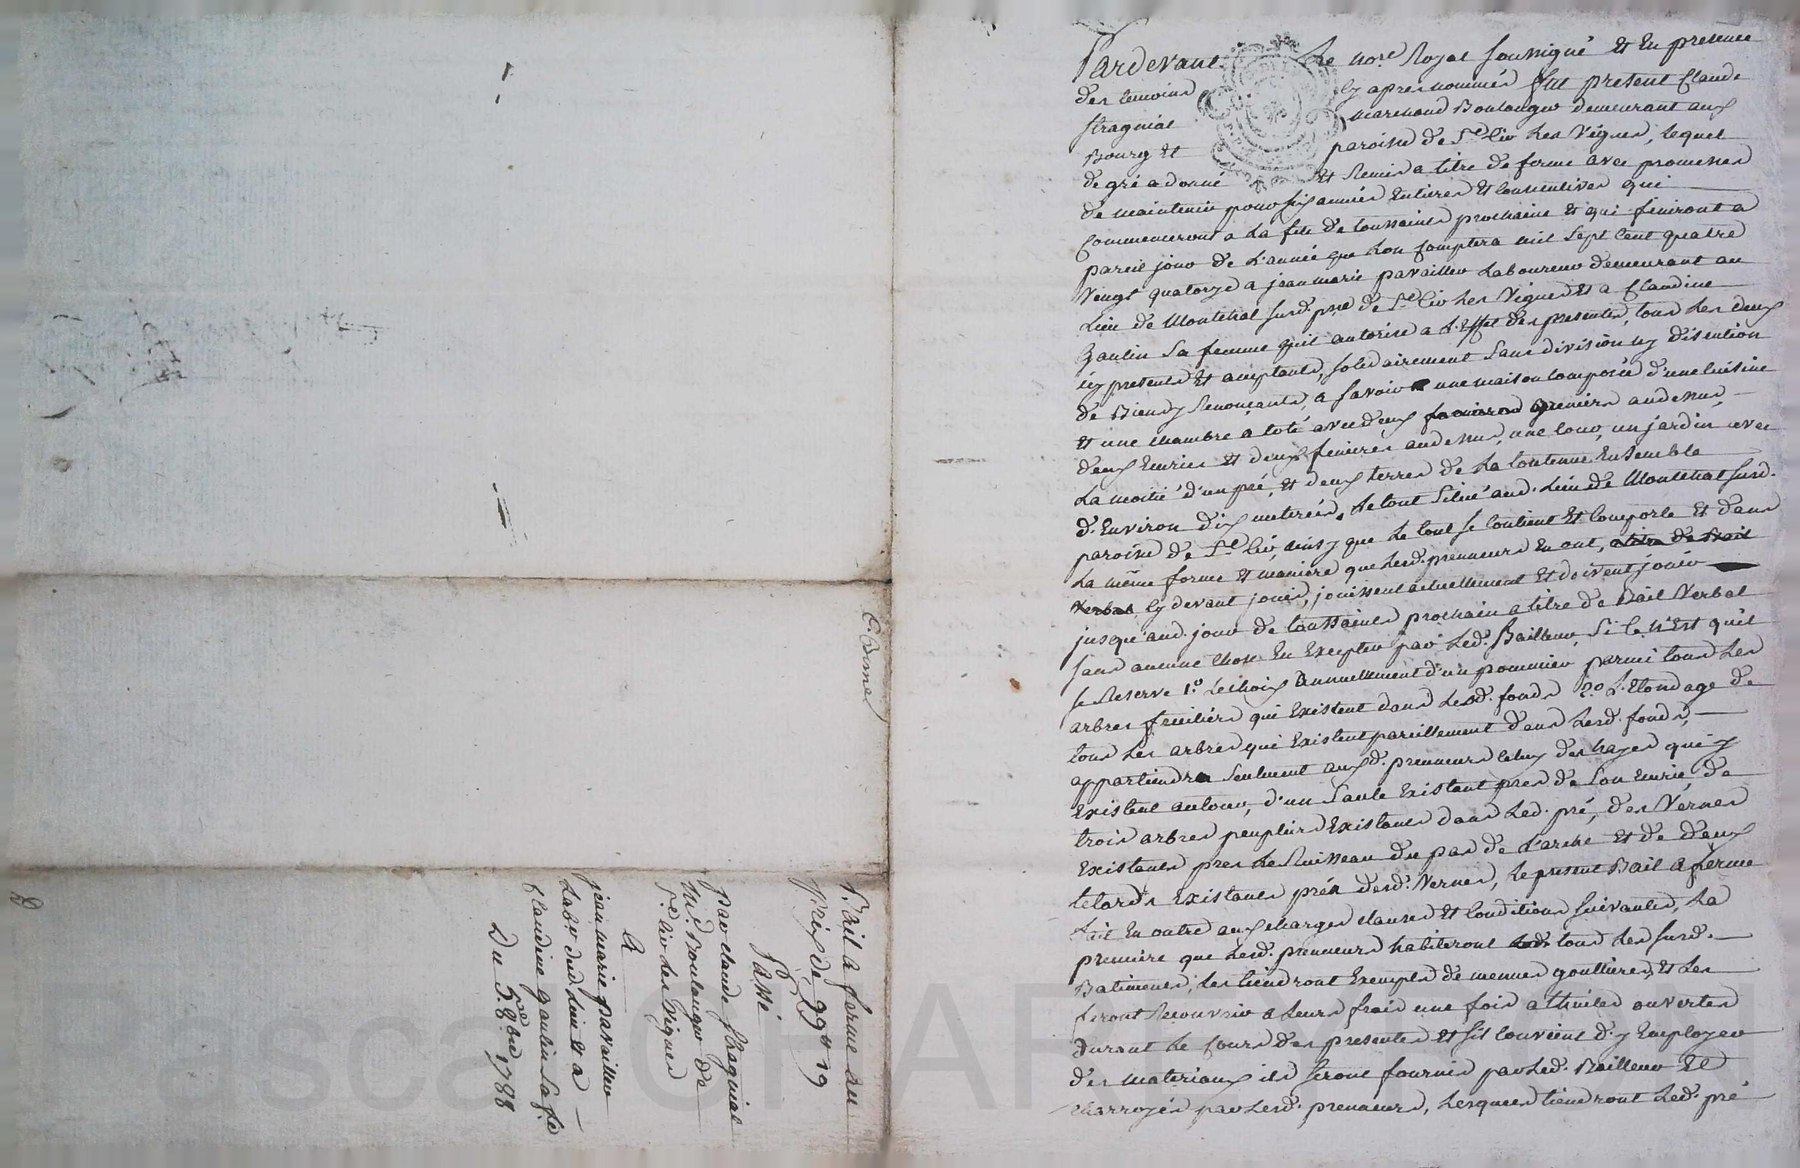 Pardevant Le no.re Royal soussigné Et En presence
des temoins Cy apres nommés fut present Claude
marchand Boulanger demeurant aux
Bourg Et paroisse de S.t Cir Les Vignes, Lequel
de gré a donné Et Remis a titre de ferme avec promesses
de maintenir pour six années Entieres Et Consecutives qui
Commenceront a La fete de toussaints prochaine Et qui finiront a
pareil jour de L'année que Lon Comptera mil Sept Cent quatre
Vingt quatorze a jean marie pavailler Laboureur demeurant au
Lieu de Montchal surd. p.sse de S.t Cir Les Vignes Et a Claudine
gaulin Sa femme qu'il autorise a L'Effet des presentes, tous Les deux
icy presents Et acceptants, solidairement Sans division ny disention
de Biens y Renonçants, a savoir une maison composée d'une Cuisine
Et une chambre a Coté avec deux greniers audessus,
deux Ecuries Et deux fenieres audessus, une Cour, un jardin avec
La moitié d'un pré, Et deux terres de La Contenue Ensemble
d'Environ dix meterées, Le tout Situé aud. Lieu de Montchal surd.
paroisse de S.t Cir, ainsy que Le tout se Contient Et Comporte Et dans
La même forme Et maniere que Lesd. preneurs En ont, a titre de Bail
Verbal Cy devant joui, jouissent actuellement Et doivent jouir
jusqu'aud. jour de toussaints prochain a titre de Bail Verbal
sans aucune Chose En Excepter par Led. Bailleur, Si Ce n'Est qu'il
se Reserve 1.o Le choix annuellement d'un pommier parmi tous Les
arbres fruitiers qui Existent dans Lesd. fonds 2.o L'Elondage de
tous Les arbres qui Existent pareillement dans Lesd. fonds,
appartiendra seulement auxd. preneurs Celuy des hayes qui y
Existent autour, d'un Saule Existant pres de Son Ecurie de
trois arbres peupliers Existants dans Led. pré, des Vernes
Existants pres Le Ruisseau du pas de L'arche Et de deux
Existants prés desd. Vernes, Le present Bail a ferme
fait En outre aux charges clauses Et Conditions suivantes, La
premiere que Lesd. preneurs habiteront tous Les surd.
Batiments, Les tiendront Exempts de menues gouttieres, Et Les
feront Recouvrir a Leurs frais une fois a thuiles ouvertes
durant Le Cours des presentes Et s'il Convient d'y Employer
des materiaux ils seront fournis par Led. Bailleur Et
charroyés par Lesd. preneurs, Lesquels tiendront Led. pré
Bail a ferme au
Prix de 99# 19
Passé
par claude
M.d Boulanger de
S.t Cir Les Vignes
A
jean marie pavailler
Labr. dud. Lieu Et a
Claudine gaulin Sa f.e
Du 5.e 8.bre 1788